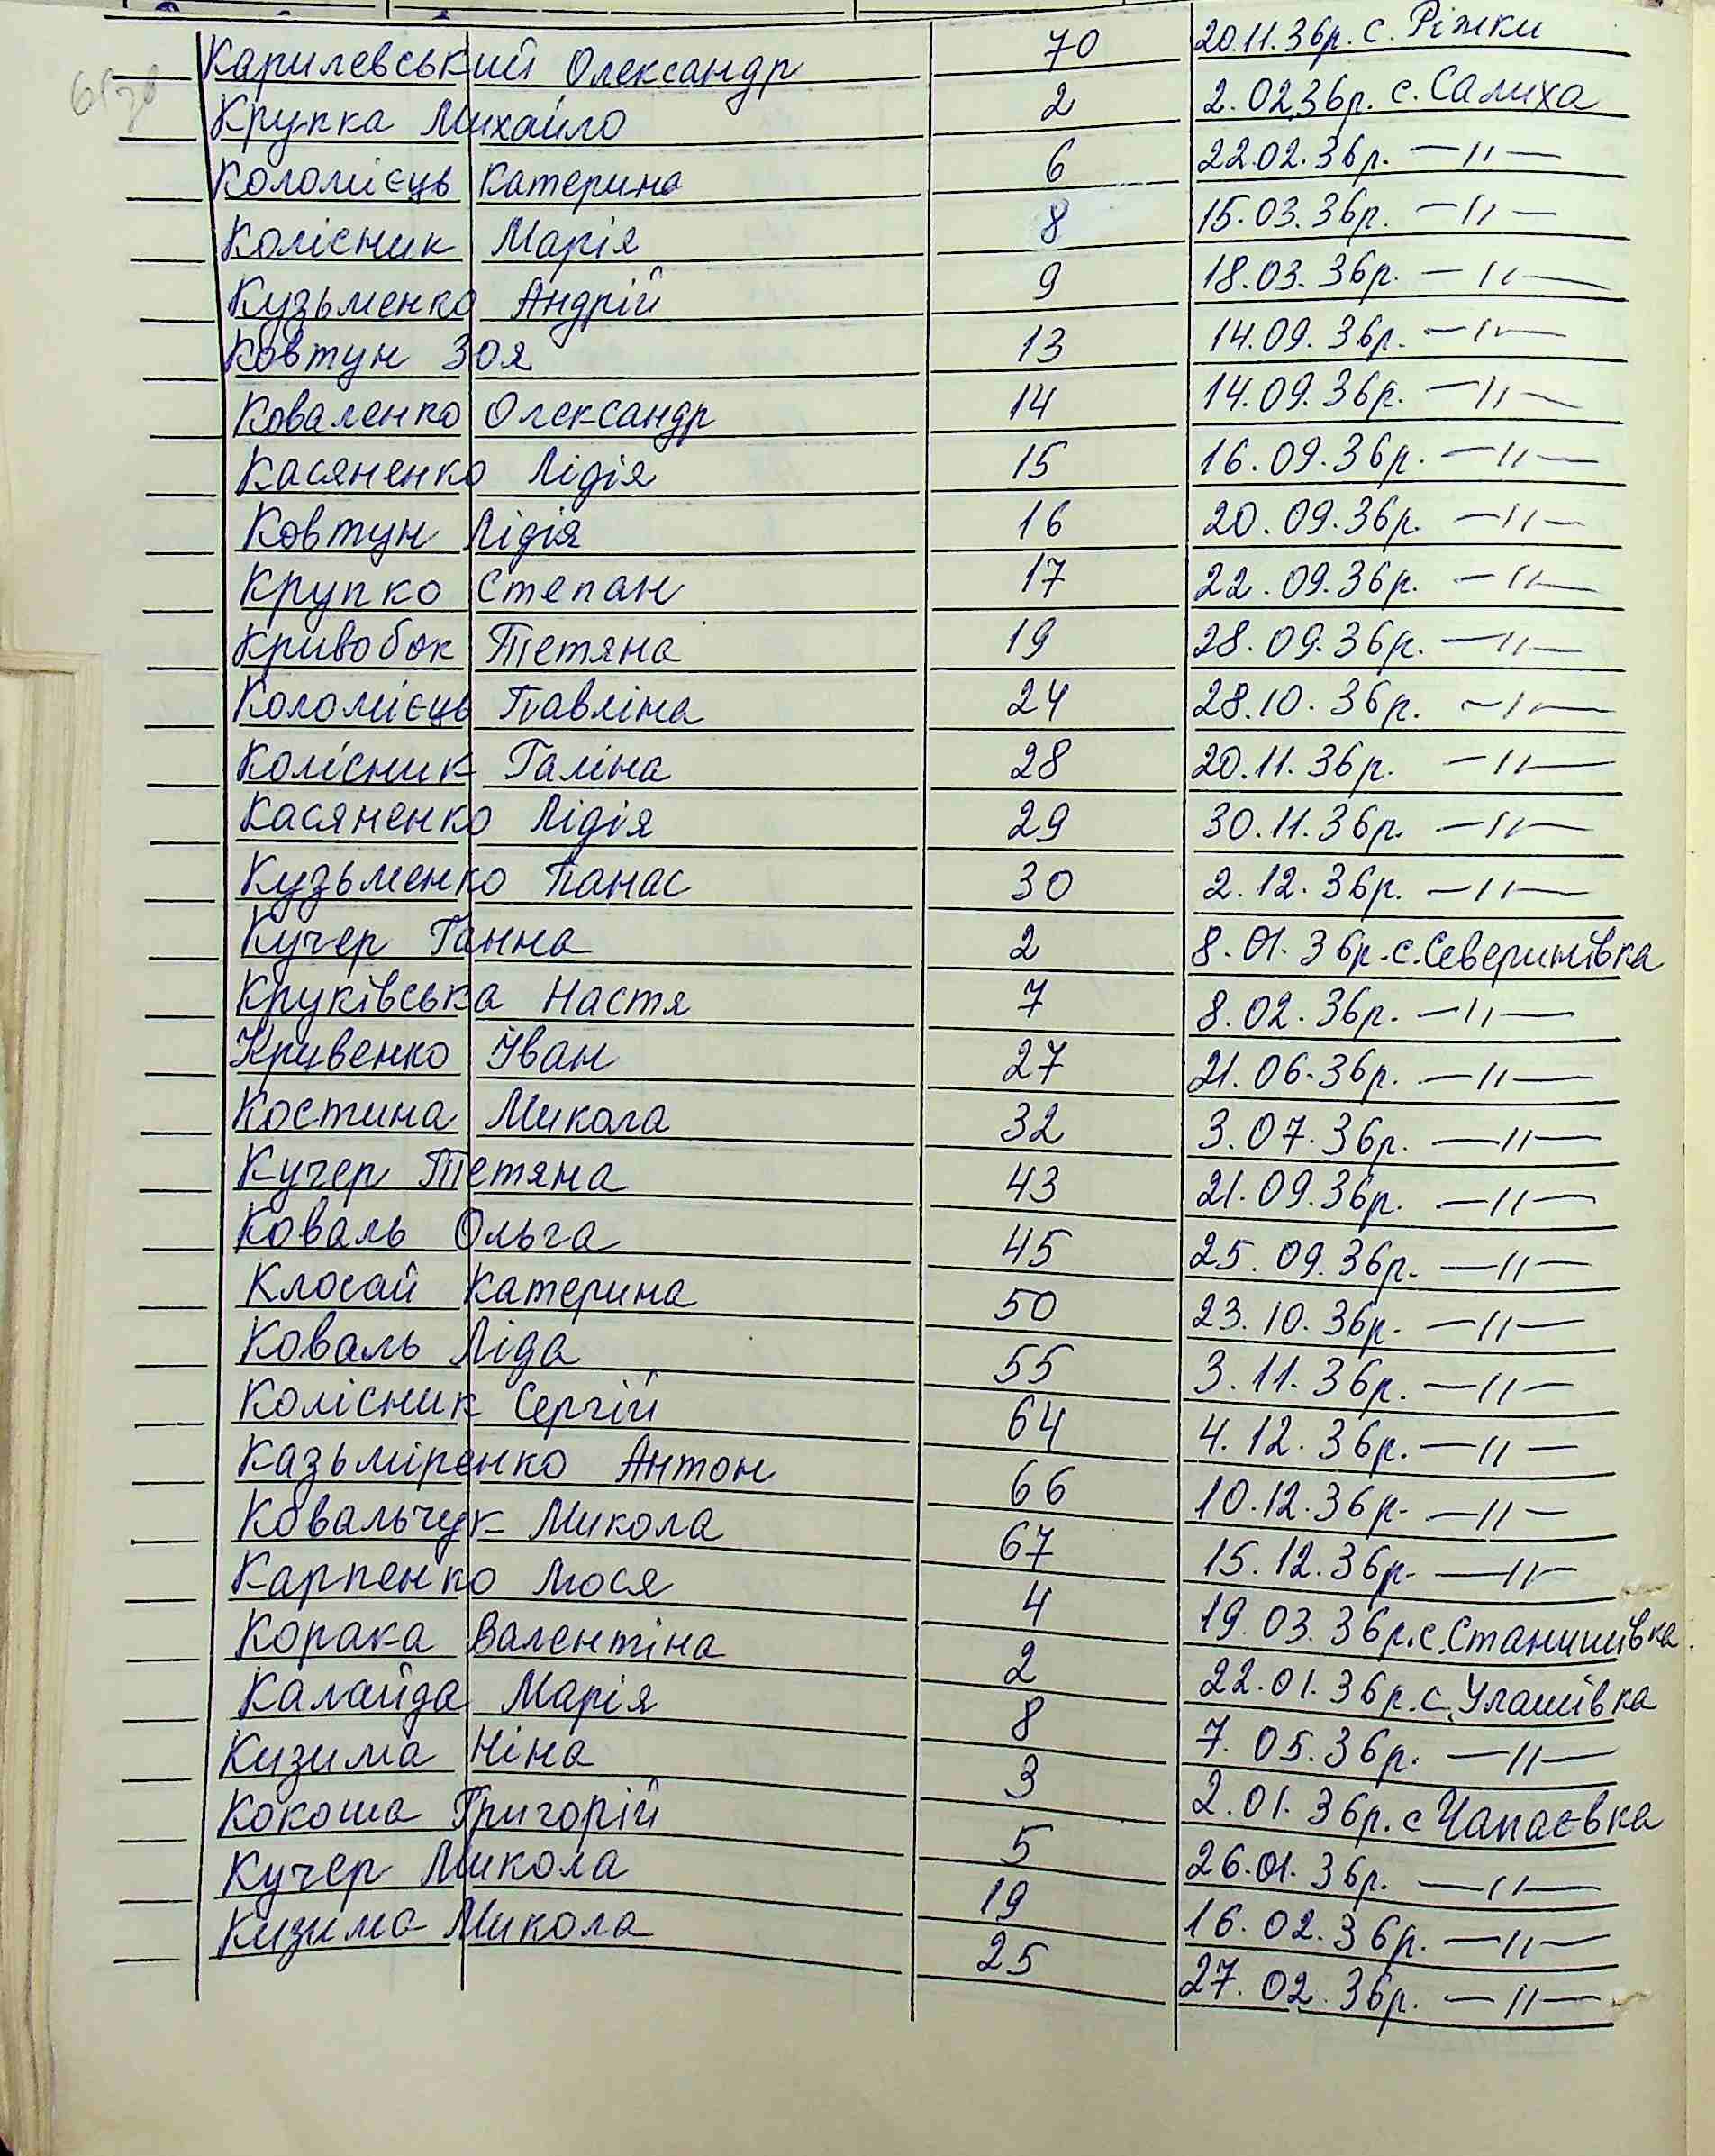 Карилевський Олександр 70 20.11.36р. с. Ріжки
Крупка Михайло 2 2.02.36р. с. Салиха
Коломієць Катерина 6 22.02.36р. —//—
Колісник Марія 8 15.03.36р. —//—
Кузьменко Андрій 9 18.03.36р. —//—
Ковтун Зоя 13 14.09.36р. —//—
Коваленко Олександр 14 14.09.36р. —//—
Касяненко Лідія 15 16.09.36р. —//—
Ковтун Лідія 16 20.09.36р. —//—
Крупко Степан 17 22.09.36р. —//—
Кривобок Тетяна 19 28.09.36р. —//—
Коломієць Павліна 24 28.10.36р. —//—
Колісник Галіна 28 20.11.36р. —//—
Касяненко Лідія 29 30.11.36р. —//—
Кузьменко Панас 30 2.12.36р. —//—
Кучер Ганна 2 8.01.36р. с. Северинівка
Круківська Настя 7 8.02.36р. —//—
Кривенко Іван 27 21.06.36р. —//—
Костина Микола 32 3.07.36р. —//—
Кучер Тетяна 43 21.09.36р. —//—
Коваль Ольга 45 25.09.36р. —//—
Клосай Катерина 50 23.10.36р. —//—
Коваль Ліда 55 3.11.36р. —//—
Колісник Сергій 64 4.12.36р. —//—
Казьміренко Антон 66 10.12.36р. —//—
Ковальчук Микола 67 15.12.36р. —//—
Карпенко Люся 4 19.03.36р. с. Станишівка
Корака Валентіна 2 22.01.36р. с. Улашівка
Калайда Марія 8 7.05.36р. —//—
Кизима Ніна 3 2.01.36р. с Чапаєвка
Кокоша Григорій 5 26.01.36р. —//—
Кучер Микола 19 16.02.36р. —//—
Кизима Микола 25 27.02.36р. —//—